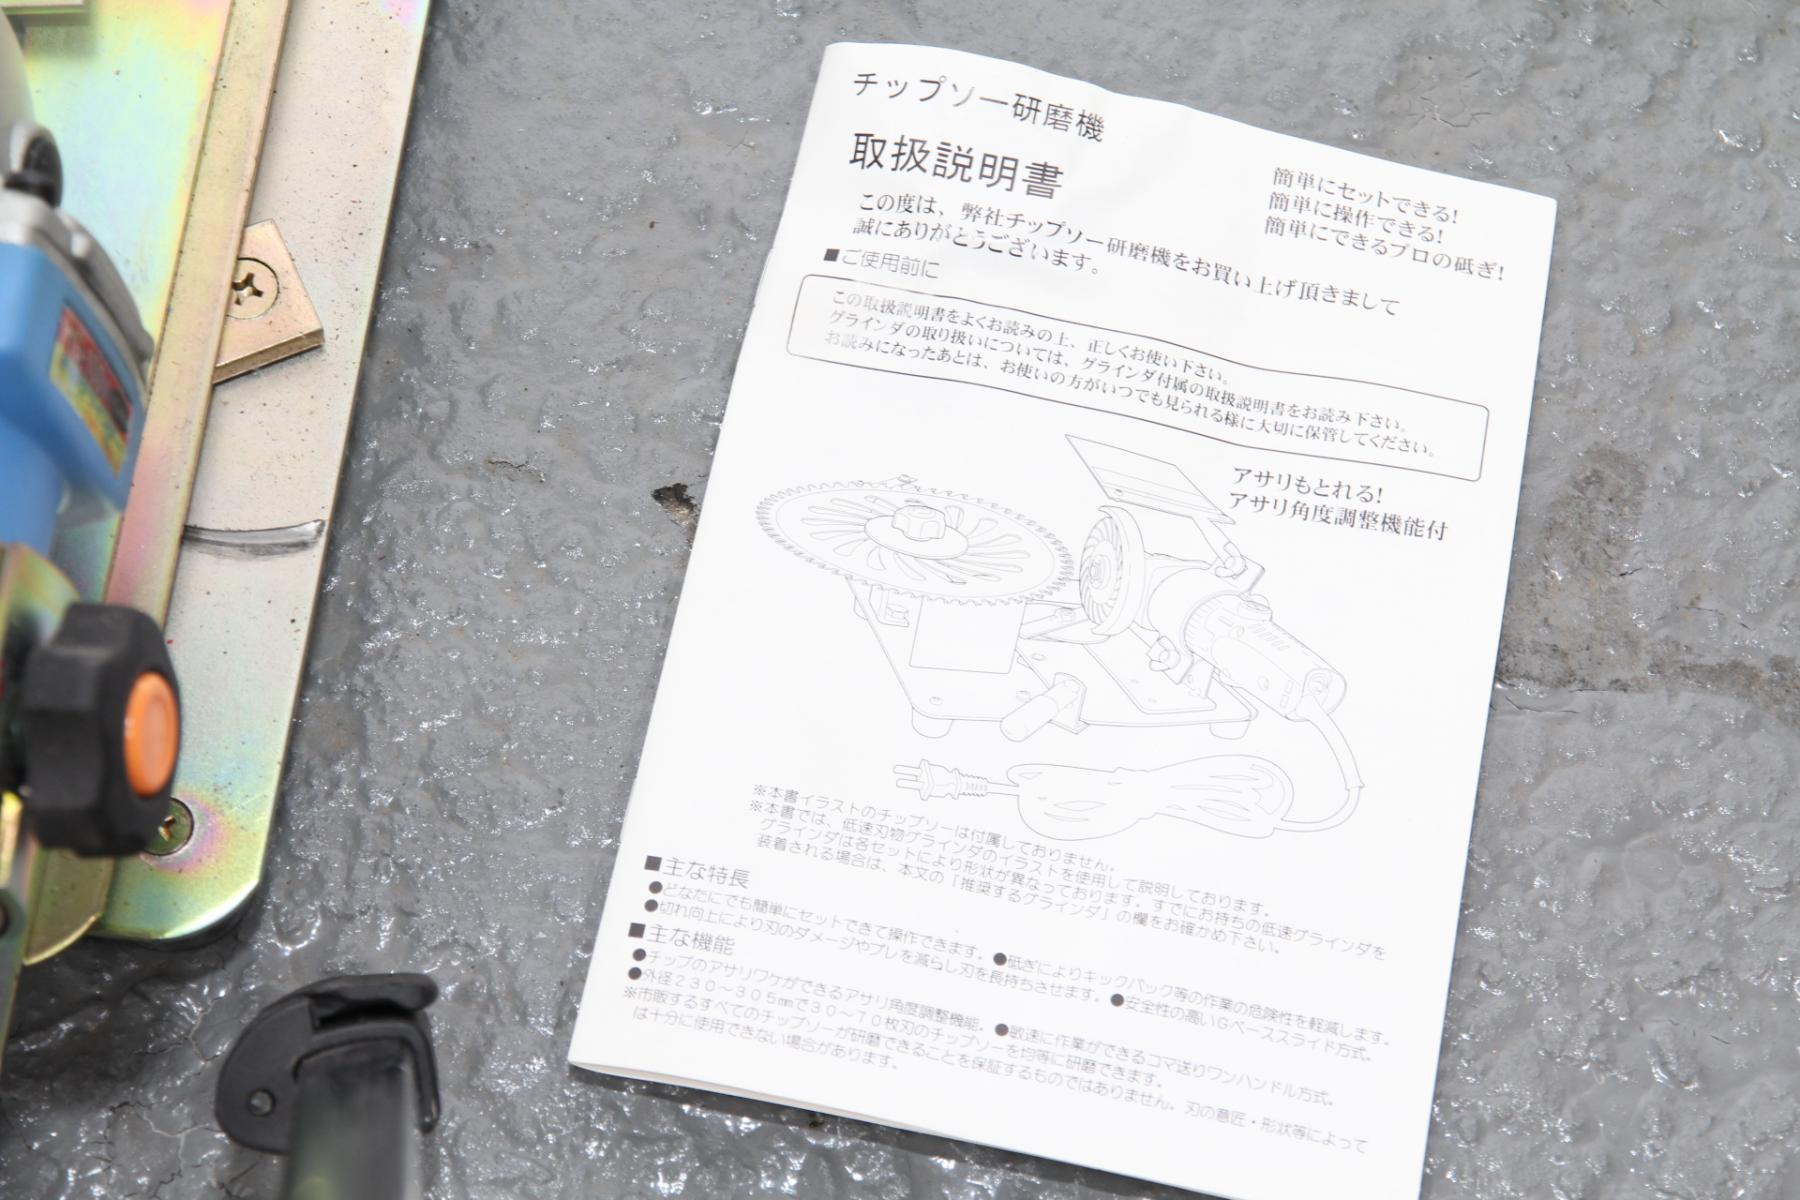 チップソー研磨機
取扱説明書
簡単にセットできる!
簡単に操作できる!
簡単にできるプロの砥ぎ!
この度は、弊社チップソー研磨機をお買い上げ頂きまして
誠にありがとうございます。
■ご使用前に
この取扱説明書をよくお読みの上、正しくお使い下さい。
グラインダの取り扱いについては、グラインダ付属の取扱説明書をお読み下さい。
お読みになったあとは、お使いの方がいつでも見られる様に大切に保管してください。
アサリもとれる!
アサリ角度調整機能付
※本書イラストのチップソーは付属しておりません。
※本書では、低速刃物グラインダのイラストを使用して説明しております。
グラインダは各セットにより形状が異なっております。すでにお持ちの低速グラインダを
装着される場合は、本文の「推奨するグラインダ」の欄をお確かめ下さい。
■主な特長
●どなたにでも簡単にセットできて操作できます。●砥ぎによりキックバック等の作業の危険性を軽減します。
●切れ向上により刃のダメージやブレを減らし刃を長持ちさせます。●安全性の高いGベーススライド方式。
■主な機能
●チップのアサリワケができるアサリ角度調整機能。●敏速に作業ができるコマ送りワンハンドル方式。
●外径230～305㎜で30～70枚刃のチップソーを均等に研磨できます。
※市販するすべてのチップソーが研磨できることを保証するものではありません。刃の意匠・形状等によって
は十分に使用できない場合があります。